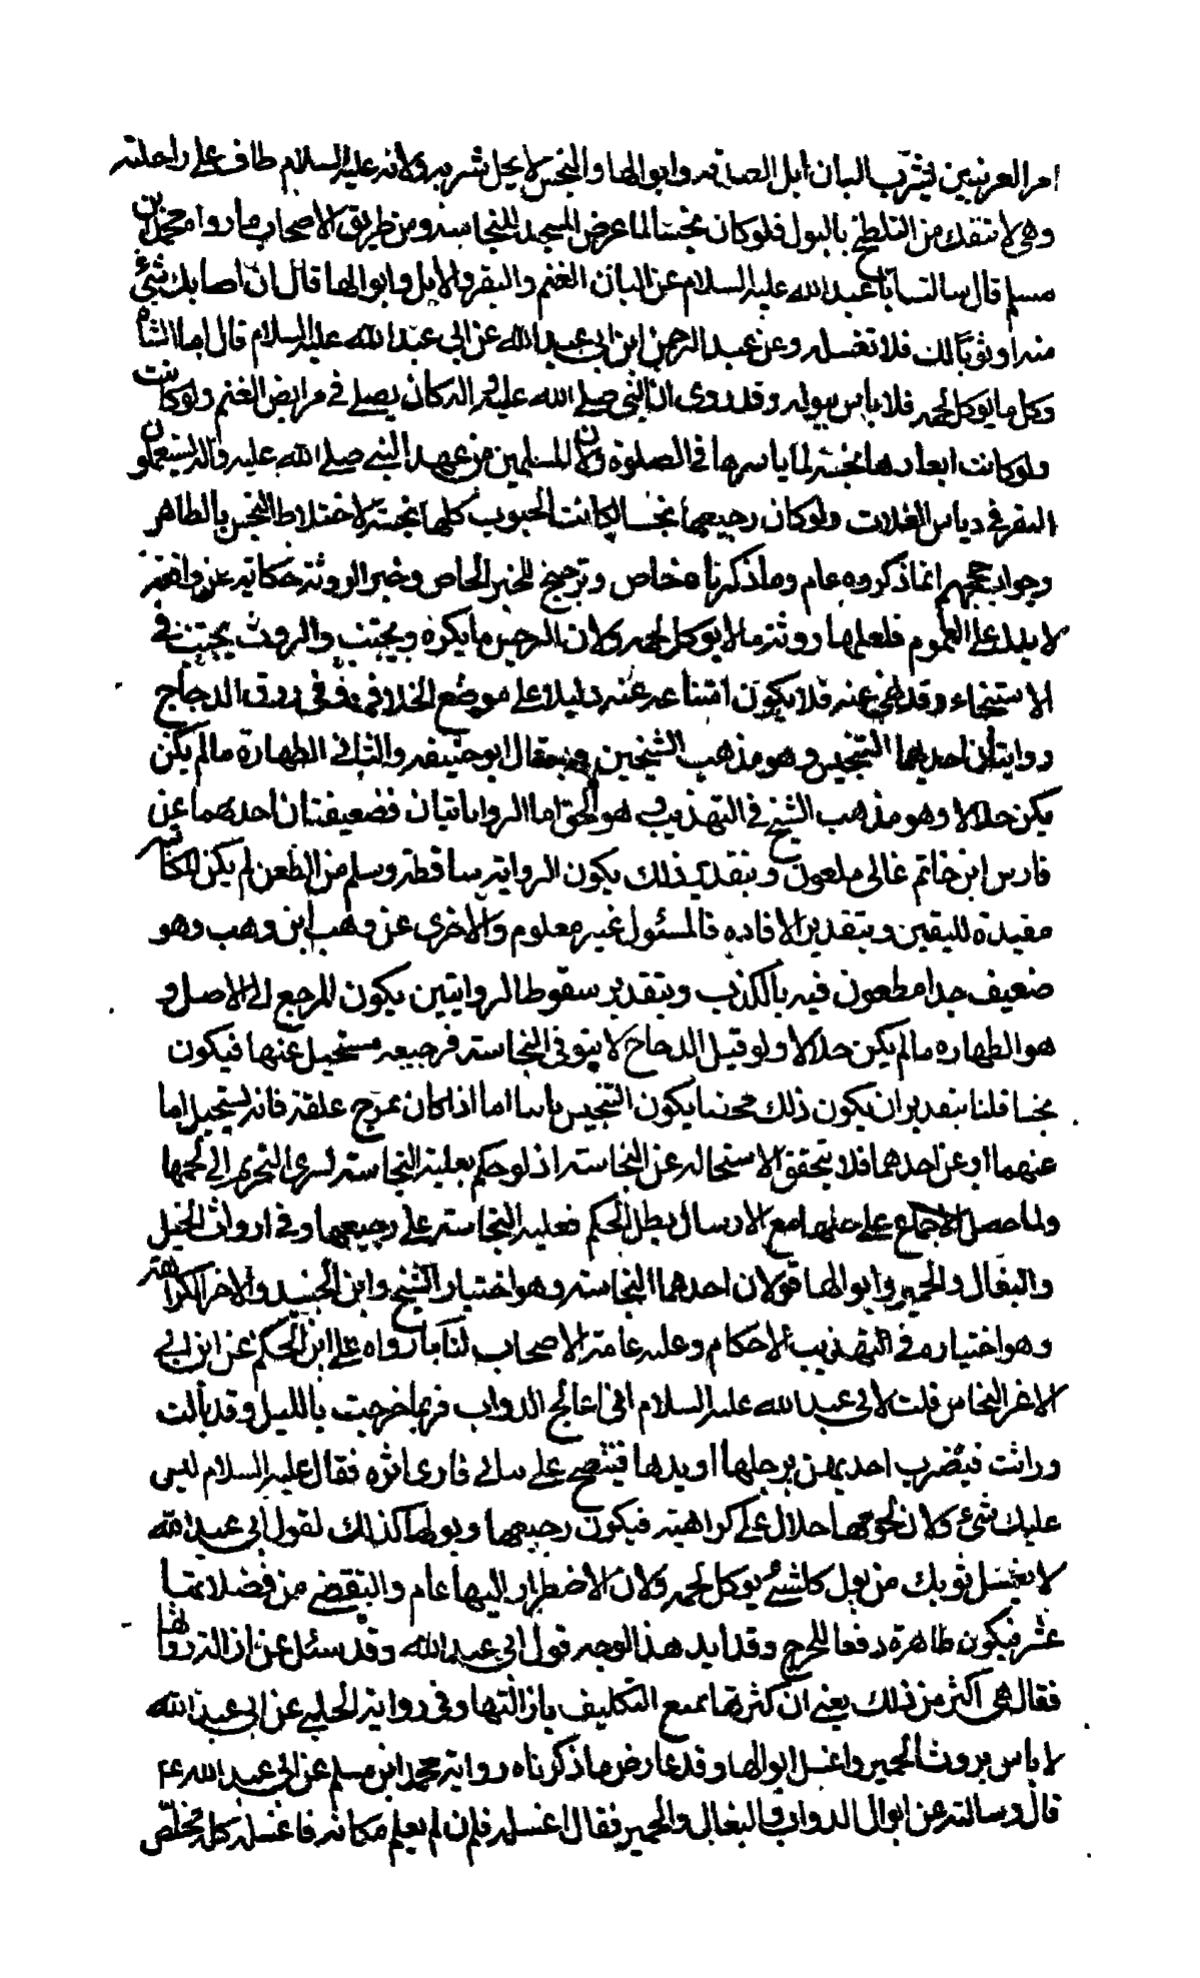 امر العرنيين بشرب البان ابل الصدقه وابوالها والنجس لا يحل شربه ولانه عليه السلام طاف على راحلته
وهي لا تنفك من التلطخ بالبول فلو كان نجسا لما عرض المسجد للنجاسة ومن طريق الاصحاب ما رواه محمد بن
مسلم قال سالت ابا عبد الله عليه السلام عن البان الغنم والبقر والابل وابوالها قال ان اصابك شئ
منه او ثوبا لك فلا تغسله وعن عبد الرحمن ابن ابي عبد الله عن ابي عبد الله عليه السلام قال اما الشاه
وكل ما يوكل لحمه فلا باس ببوله وقد روى ان النبي صلى الله عليه واله كان يصلي في مرابض الغنم ولو كانت
ولو كانت ابعارها نجسة لما باشرها في الصلوة ولان المسلمين من عهد النبي صلى الله عليه واله يستعملون
البقر في دياس الغلات ولو كان رجيعها نجسا لكانت الحبوب كلها نجسة لاختلاط النجس بالطاهر
وجواب حججهم انما ذكروه عام وما ذكرناه خاص وترجيح للخبر الخاص وخبر الروثة حكاية عن واقعة
لا يدل على العموم فلعلها روثة ما لا يوكل لحمه ولان الرجس ما يكره ويجتنب والروث يجتنب في
الاستنجاء وقد نهي عنه فلا يكون امتناعه عنه دليلا على موضع الخلاف وفي ذرق الدجاج
روايتان احديهما التنجيس وهو مذهب الشيخين وبه قال ابو حنيفه والثاني الطهارة ما لم يكن
يكن جلالا وهو مذهب الشيخ في التهذيب وهو الحق اما الروايتان فضعيفتان احدهما عن
فارس ابن خاتم غالي ملعون وبتقدير ذلك يكون الرواية ساقطة وسلم من الطعن لم يكن المكاتبه
مفيدة لليقين وبتقدير الافاده فالمسئول غير معلوم والاخرى عن وهب ابن وهب وهو
ضعيف جدا مطعون فيه بالكذب وبتقدير سقوط الروايتين يكون المرجع الى الاصل و
هو الطهاره ما لم يكن جلالا ولو قيل الدجاج لا يتوقى النجاسة فرجيعه مستحيل عنها فيكون
نجسا قلنا بتقدير ان يكون ذلك محضا يكون التنجيس باسا اما اذا كان يمزج علفه فانه يستحيل اما
عنهما او عن احدهما فلا يتحقق الاستحاله عن النجاسة اذ لو حكم بغلبة النجاسة لسرى التحريم الى لحمها
ولما حصل الاجماع على حلها مع الارسال بطل الحكم فغلبة النجاسة على رجيعها وفي ارواث الخيل
والبغال والحمير وابوالها قولان احدهما النجاسة وهو اختيار الشيخ وابن الجنيد والاخر الكراهة
وهو اختياره في التهذيب الاحكام وعليه عامة الاصحاب لنا ما رواه علي ابن الحكم عن ابن ابي
الاغر النخاس قلت لابي عبد الله عليه السلام اني اعالج الدواب فربما خرجت بالليل وقد بالت
وراثت فيضرب احديهن برجلها او يدها فينتضح على ثيابي فارى اثره فقال عليه السلام ليس
عليك شئ ولان لحومها حلال على كراهية فيكون رجيعها وبولها كذلك لقول ابي عبد الله
لا يغسل ثوبك من بول كل شئ يوكل لحمه ولان الاضطرار اليها عام والتقصي من فضلاتها
عسر فيكون طاهرة دفعا للحرج وقد ايد هذا الوجه قول ابي عبد الله وقد سئل عن ازالة روثها
فقال هي اكثر من ذلك يعني ان كثرتها تمنع التكليف بازالتها وفي رواية الحلبي عن ابي عبد الله
لا باس بروث الحمير واغسل ابوالها وقد عارض ما ذكرناه رواية محمد ابن مسلم عن ابي عبد الله عم
قال وسالته عن ابوال الدواب والبغال والحمير فقال اغسله فان لم يعلم مكانه فاغسله كله ملخص